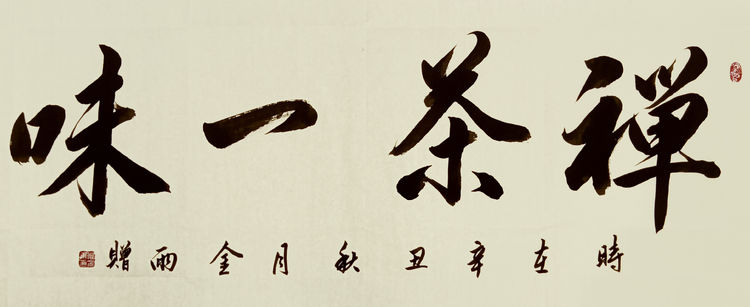 禪茶一味
時在辛丑秋月金雨贈